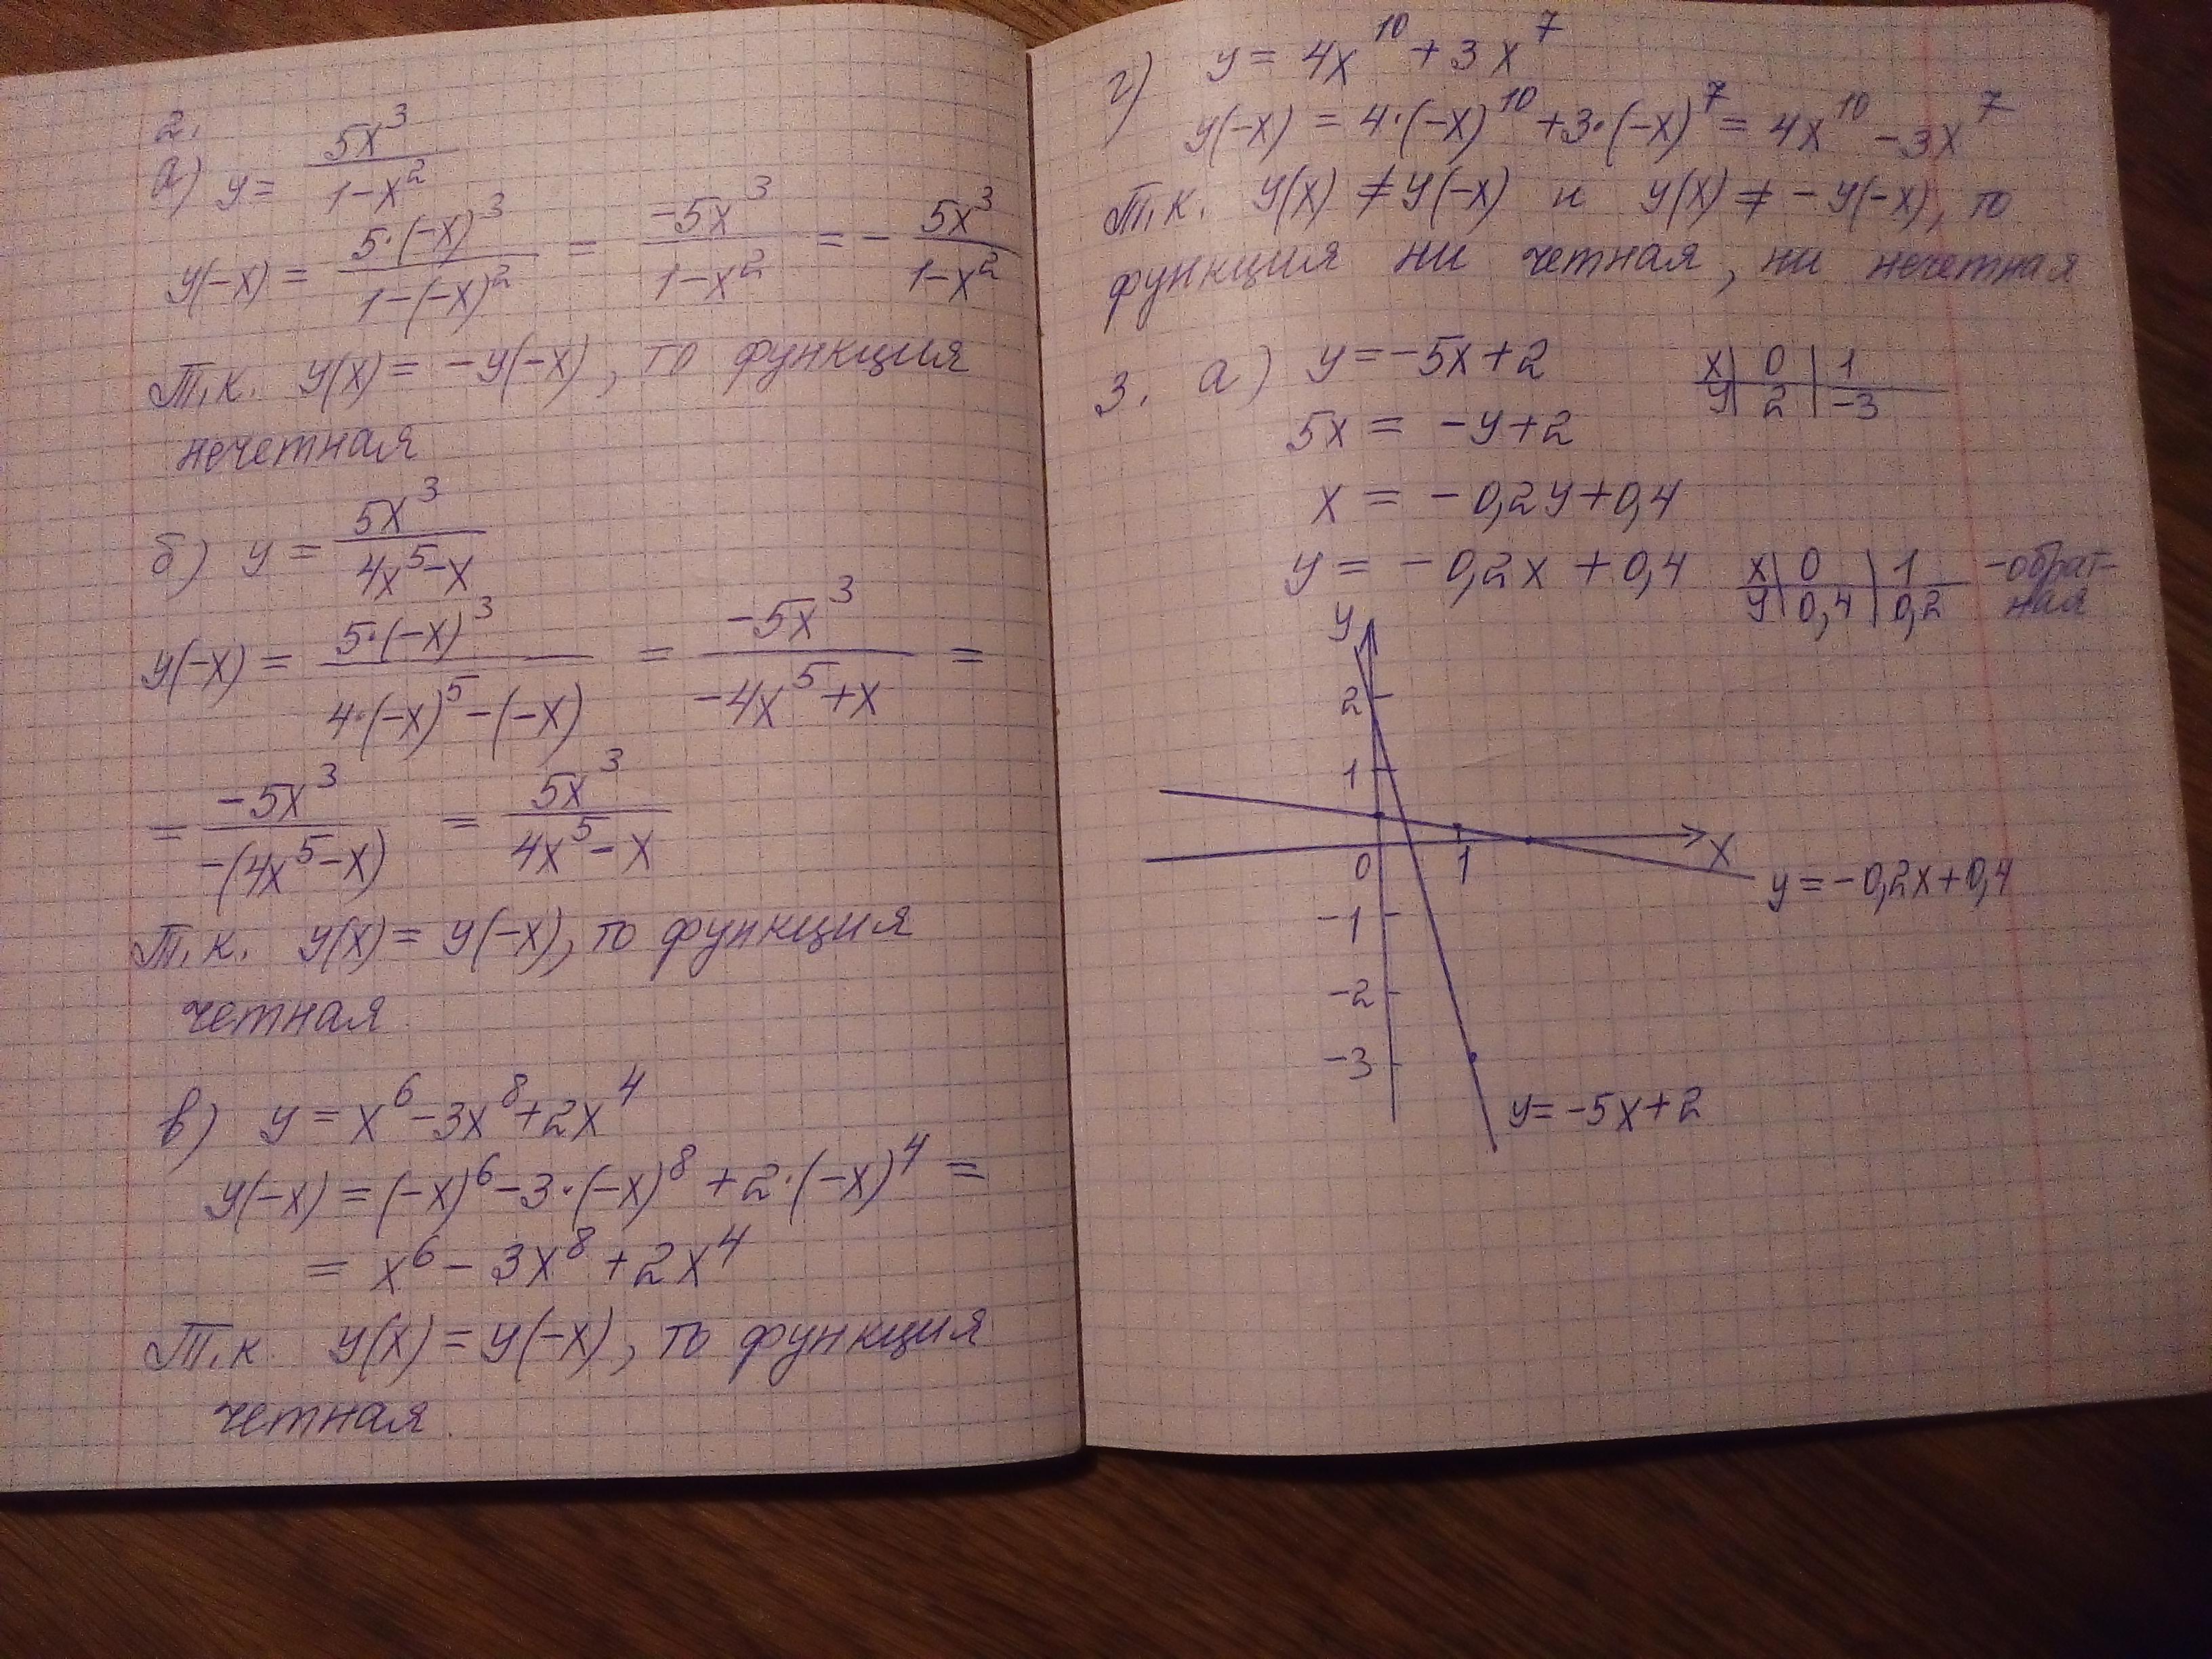 2.
а) y = 5x³/(1-x²)
y(-x) = 5·(-x)³/(1-(-x)²) = -5x³/(1-x²) = - 5x³/(1-x²)
Т.к. y(x) = -y(-x), то функция
нечетная
б) y = 5x³/(4x⁵-x)
y(-x) = 5·(-x)³/(4·(-x)⁵-(-x)) = -5x³/(-4x⁵+x) =
= -5x³/(-(4x⁵-x)) = 5x³/(4x⁵-x)
Т.к. y(x) = y(-x), то функция
четная
в) y = x⁶-3x⁸+2x⁴
y(-x) = (-x)⁶-3·(-x)⁸+2·(-x)⁴ =
= x⁶-3x⁸+2x⁴
Т.к y(x) = y(-x), то функция
четная.
г) y = 4x¹⁰+3x⁷
y(-x) = 4·(-x)¹⁰+3·(-x)⁷ = 4x¹⁰-3x⁷
Т.к. y(x) ≠ y(-x) и y(x) ≠ -y(-x), то
функция ни четная, ни нечетная
3. а) y = -5x+2
x | 0 | 1
y | 2 | -3
5x = -y+2
x = -0,2y+0,4
y = -0,2x+0,4
x | 0 | 1
y | 0,4 | 0,2
-обрат-
ная
y
2
1
0
1
x
y = -0,2x+0,4
-1
-2
-3
y = -5x+2